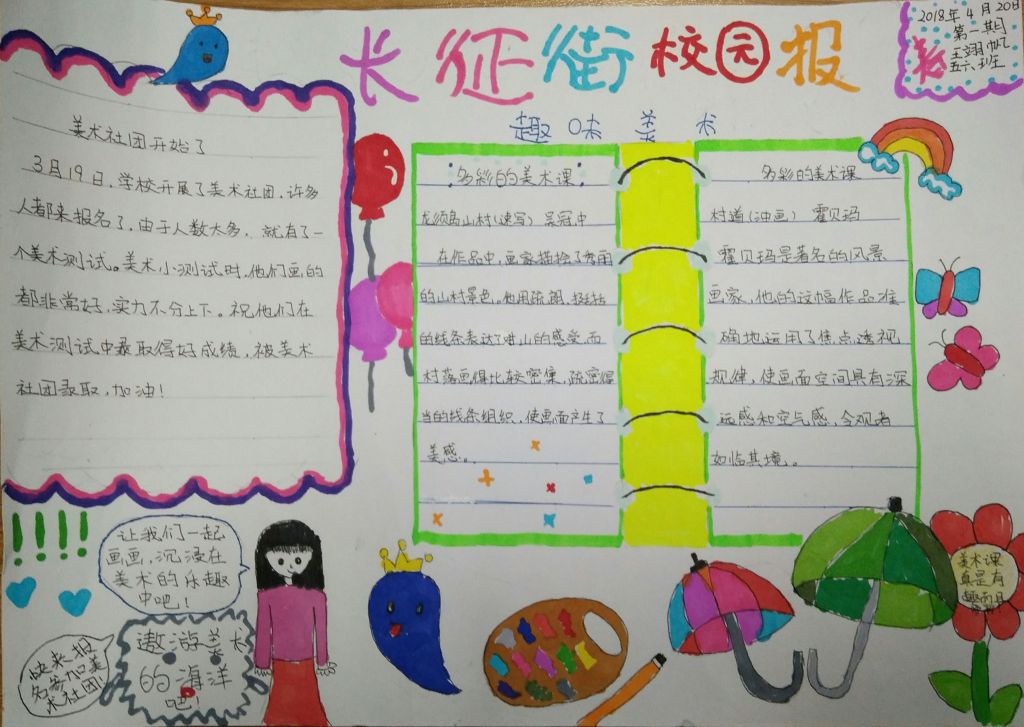 长征街校园报
2018年4月20日
第一期
五六班
美术社团开始了
3月19日，学校开展了美术社团，许多
人都来报名了，由于人数太多，就有了一
个美术测试。美术小测试时，他们画的
都非常好，实力不分上下。祝他们在
美术测试中最取得好成绩，被美术
社团录取，加油！
趣味美术
多彩的美术课
龙须岛山村（速写） 吴冠中
在作品中，画家描绘了秀丽
的山村景色。他用疏朗、
的线条表达了对山的感受，而
村落画得比较密集，疏密得
当的线条组织，使画面产生了
美感。
多彩的美术课
村道（油画） 霍贝玛
霍贝玛是著名的风景
画家，他的这幅作品准
确地运用了焦点透视
规律，使画面空间具有深
远感和空气感，令观者
如临其境。
让我们一起
画画，沉浸在
美术的乐趣
中吧！
遨游美术
的海洋
吧！
快来报
名参加美
术社团！
美术课
真是有
趣